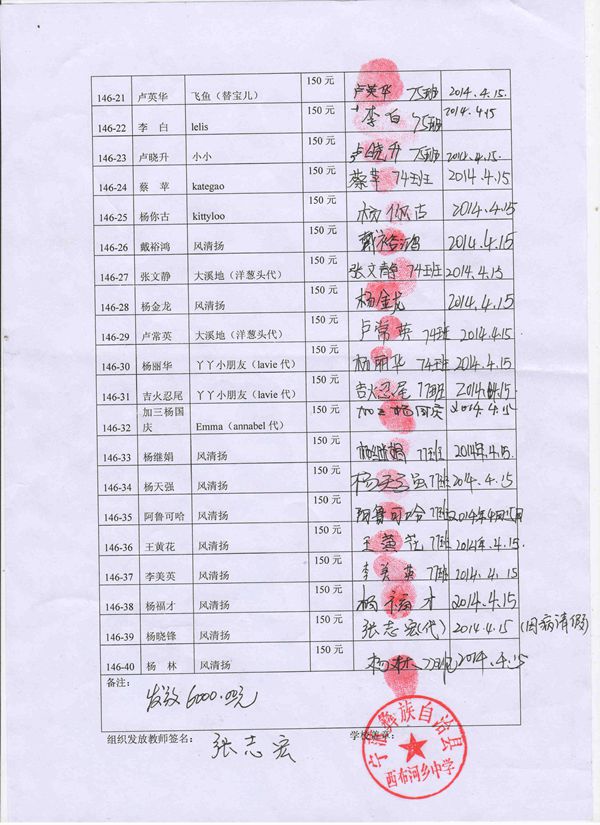 146-21 卢英华 飞鱼（替宝儿） 150元 卢英华 75班 2014.4.15.
146-22 李 白 lelis 150元 李白 75班 2014.4.15
146-23 卢晓升 小小 150元 卢晓升 75班 2014.4.15
146-24 蔡 苹 kategao 150元 蔡苹 74班 2014.4.15
146-25 杨你古 kittyloo 150元 杨你古 2014.4.15
146-26 戴裕鸿 风清扬 150元 戴裕鸿 2014.4.15
146-27 张文静 大溪地（洋葱头代） 150元 张文静 74班 2014.4.15
146-28 杨金龙 风清扬 150元 杨金龙 2014.4.15
146-29 卢常英 大溪地（洋葱头代） 150元 卢常英 74班 2014.4.15
146-30 杨丽华 丫丫小朋友（lavie 代） 150元 杨丽华 74班 2014.4.15
146-31 吉火忍尾 丫丫小朋友（lavie 代） 150元 吉火忍尾 77班 2014.4.15
146-32 加三杨国庆 Emma（annabel 代） 150元 加三杨国庆 2014.4.15
146-33 杨继娟 风清扬 150元 杨继娟 77班 2014年.4.15
146-34 杨天强 风清扬 150元 杨天强 77班 2014.4.15
146-35 阿鲁可哈 风清扬 150元 阿鲁可哈 77班 2014年4月15日
146-36 王黄花 风清扬 150元 王黄花 77班 2014年.4.15.
146-37 李美英 风清扬 150元 李美英 77班 2014.4.15
146-38 杨福才 风清扬 150元 杨福才 2014.4.15
146-39 杨晓锋 风清扬 150元 张志宏(代) 2014.4.15 (因病请假)
146-40 杨 林 风清扬 150元 杨林 2014.4.15
备注：
发放6000.00元
组织发放教师签名： 张志宏 学校签章：
宁蒗彝族自治县
西布河乡中学